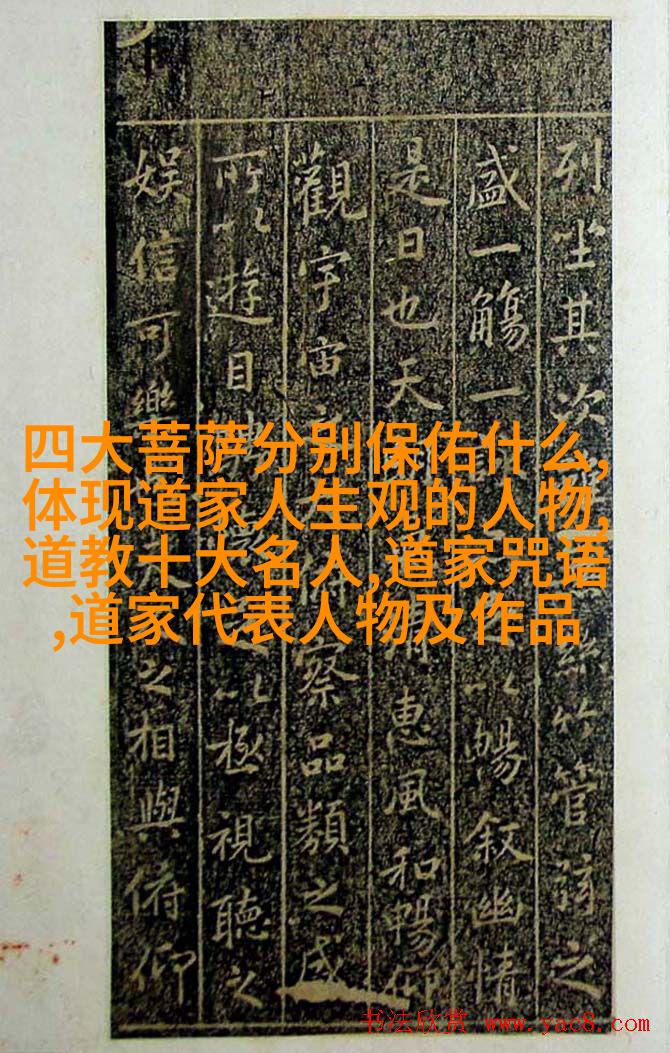 列坐其次 絲竹管弦之
盛一觴一 以暢叙幽情
是日也天 惠風和暢仰
觀宇宙 察品類之盛
所以遊目 以極視聽之
娱信可樂 之相與俯仰
四大菩萨分别保佑什么,
体现道家人生观的人物,
道教十大名人,道家咒语
,道家代表人物及作品
书法欣赏 www.yac8.com